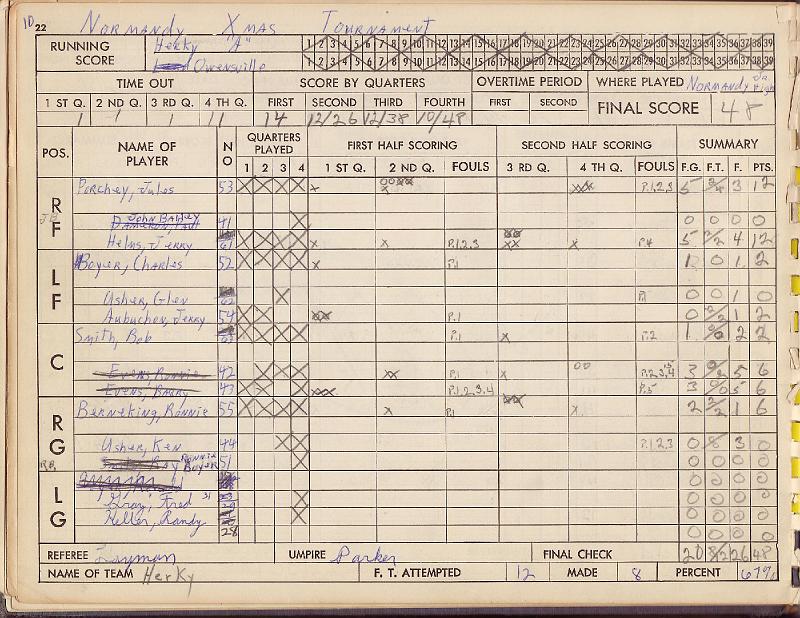 10 22 Normandy Xmas Tournament
RUNNING SCORE
Herky "A" 1 2 3 4 5 6 7 8 9 10 11 12 13 14 15 16 17 18 19 20 21 22 23 24 25 26 27 28 29 30 31 32 33 34 35 36 37 38 39
Owensville 1 2 3 4 5 6 7 8 9 10 11 12 13 14 15 16 17 18 19 20 21 22 23 24 25 26 27 28 29 30 31 32 33 34 35 36 37 38 39
TIME OUT SCORE BY QUARTERS OVERTIME PERIOD WHERE PLAYED Normandy Jr. High
1 ST Q. 2 ND Q. 3 RD Q. 4 TH Q. FIRST SECOND THIRD FOURTH FIRST SECOND FINAL SCORE 48
1 1 1 11 14 12/26 12/38 10/48
POS. NAME OF PLAYER NO QUARTERS PLAYED FIRST HALF SCORING SECOND HALF SCORING SUMMARY
1 2 3 4 1 ST Q. 2 ND Q. FOULS 3 RD Q. 4 TH Q. FOULS F.G. F.T. F. PTS.
RF
Porchey, Jules 53 X X X X P.1,2,3 5 2/4 3 12
John Bailey
Dameron, Paul 41 X 0 0 0 0
Helms, Jerry 61 X X X X P.1,2,3 P.4 5 2/2 4 12
LF
Boyer, Charles 52 X X X X P.1 1 0 1 2
Usher, Glen 62 X P.1 0 0 1 0
Aubuchon, Jerry 54 X X P.1 0 2/2 1 2
C
Smith, Bob X X X X P.1 P.2 1 0/0 2 2
Evens, Ronnie 42 X X X P.1 P.2,3,4 3 0/2 5 6
Evens, Barry 43 X X X P.1,2,3,4 P.5 3 0/0 5 6
RG
Berneking, Ronnie 55 X X X X P.1 2 2/2 1 6
Usher, Ken 44 X X P.1,2,3 0 0 3 0
Ray Ronnie Boyer 51 X 0 0 0 0
LG
0 0 0 0
Gray, Fred 31 X 0 0 0 0
Keller, Randy X 0 0 0 0
28 0 0 0 0
REFEREE Layman UMPIRE Parker FINAL CHECK 20 8/12 26 48
NAME OF TEAM Herky F. T. ATTEMPTED 12 MADE 8 PERCENT 67%